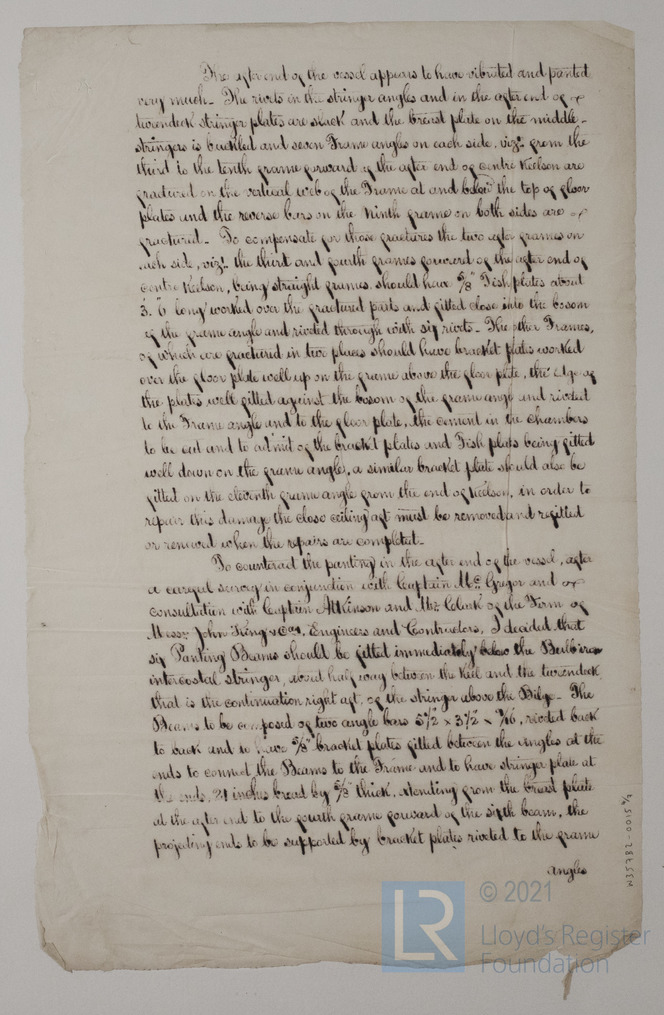 The after end of the vessel appears to have vibrated and panted
very much. The rivets in the stringer angles and in the after end of
tweendeck stringer plates are slack and the breast plate on the middle
stringers is buckled and seven Frame angles on each side, vizt. from the
third to the tenth frame forward of the after end of centre Keelson are
fractured on the vertical web of the Frame at and below the top of floor
plates and the reverse bars on the Ninth frame on both sides are
fractured. To compensate for those fractures the two after frames on
each side, vizt. the third and fourth frames forward of the after end of
centre Keelson, being straight frames, should have 5/8" Fish plates about
3. 6 long worked over the fractured parts and fitted close into the bosom
of the frame angle and riveted through with six rivets. The other Frames,
of which are fractured in two places should have bracket plates worked
over the floor plate well up on the frame above the floor plate, the edge of
the plates well fitted against the bosom of the frame angle and riveted
to the Frame angle and to the floor plate, the cement in the chambers
to be cut and to admit of the bracket plates and Fish plates being fitted
well down on the frame angles, a similar bracket plate should also be
fitted on the eleventh frame angle from the end of Keelson, in order to
repair this damage the close ceiling aft must be removed and refitted
or renewed when the repairs are completed.
To counteract the panting in the after end of the vessel, after
a careful survey in conjunction with Captain McGregor and
consultation with Captain Atkinson and Mr. Clark of the Firm of
Messrs John King & Co., Engineers and Contractors, I decided that
six Panting Beams should be fitted immediately below the Bulb iron
intercostal stringer, about half way between the Keel and the tweendeck
that is the continuation right aft, of the stringer above the Bilge. The
Beams to be composed of two angle bars 5½ x 3½ x 7/16, riveted back
to back and to have 5/8" bracket plates fitted between the angles at the
ends to connect the Beams to the Frame and to have stringer plate at
the ends, 21 inches broad by 5/8" thick, extending from the breast plate
at the after end to the fourth frame forward of the sixth beam, the
projecting ends to be supported by bracket plates riveted to the frame
angles
W35782-0015 2/4
© 2021
LR
Lloyd's Register
Foundation